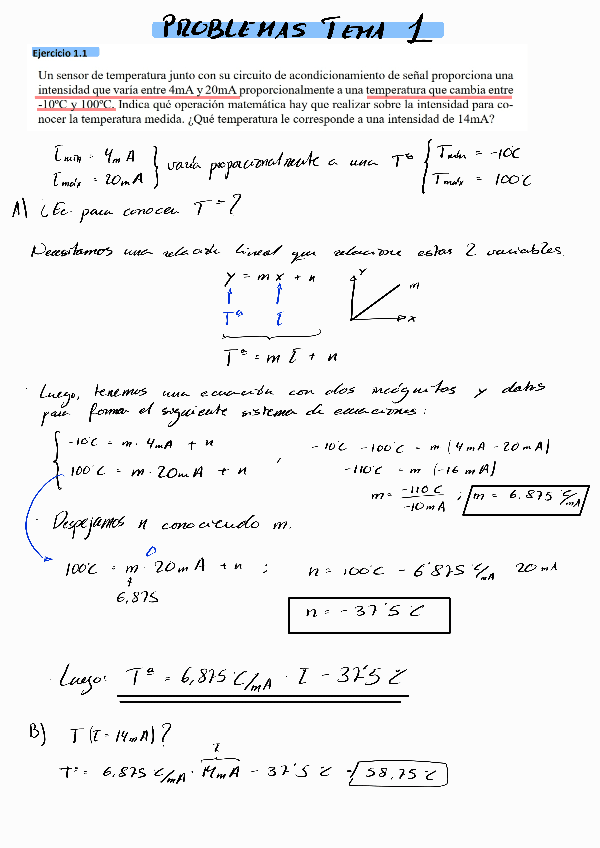 PROBLEMAS TEMA 1
Ejercicio 1.1
Un sensor de temperatura junto con su circuito de acondicionamiento de señal proporciona una
intensidad que varía entre 4mA y 20mA proporcionalmente a una temperatura que cambia entre
-10ºC y 100ºC. Indica qué operación matemática hay que realizar sobre la intensidad para co-
nocer la temperatura medida. ¿Qué temperatura le corresponde a una intensidad de 14mA?
Imín = 4mA
Imáx = 20mA
varía proporcionalmente a una Tª
Tmín = -10ºC
Tmáx = 100ºC
A) ¿Ec. para conocer T = ?
Necesitamos una relación lineal que relacione estas 2 variables.
y = m x + n
Tª I
Y m X
Tª = m I + n
· Luego, tenemos una ecuación con dos incógnitas y datos
para formar el siguiente sistema de ecuaciones:
-10ºC = m · 4mA + n
100ºC = m · 20mA + n ;
-10ºC - 100ºC = m (4mA - 20mA)
-110ºC = m (-16mA)
m = -110ºC / -10mA ; m = 6,875 ºC/mA
· Despejamos n conociendo m.
100ºC = m · 20mA + n ; n = 100ºC - 6'875 ºC/mA 20mA
6,875
n = -37'5 ºC
· Luego: Tª = 6,875 ºC/mA · I - 37'5 ºC
B) T (I = 14mA)?
I
Tª = 6,875 ºC/mA · 14mA - 37'5 ºC = 58,75 ºC